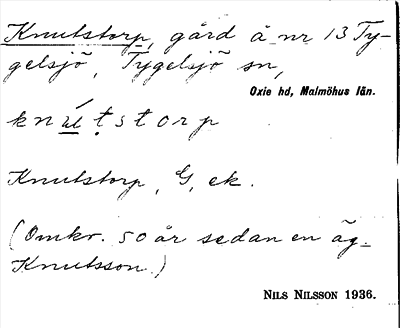 Knutstorp, gård å nr 13 Ty-
gelsjö, Tygelsjö sn,
Oxie hd, Malmöhus län.
knútṣtorp
Knutstorp, G, ek.
(Omkr. 50 år sedan en äg.
Knutsson.)
NILS NILSSON 1936.